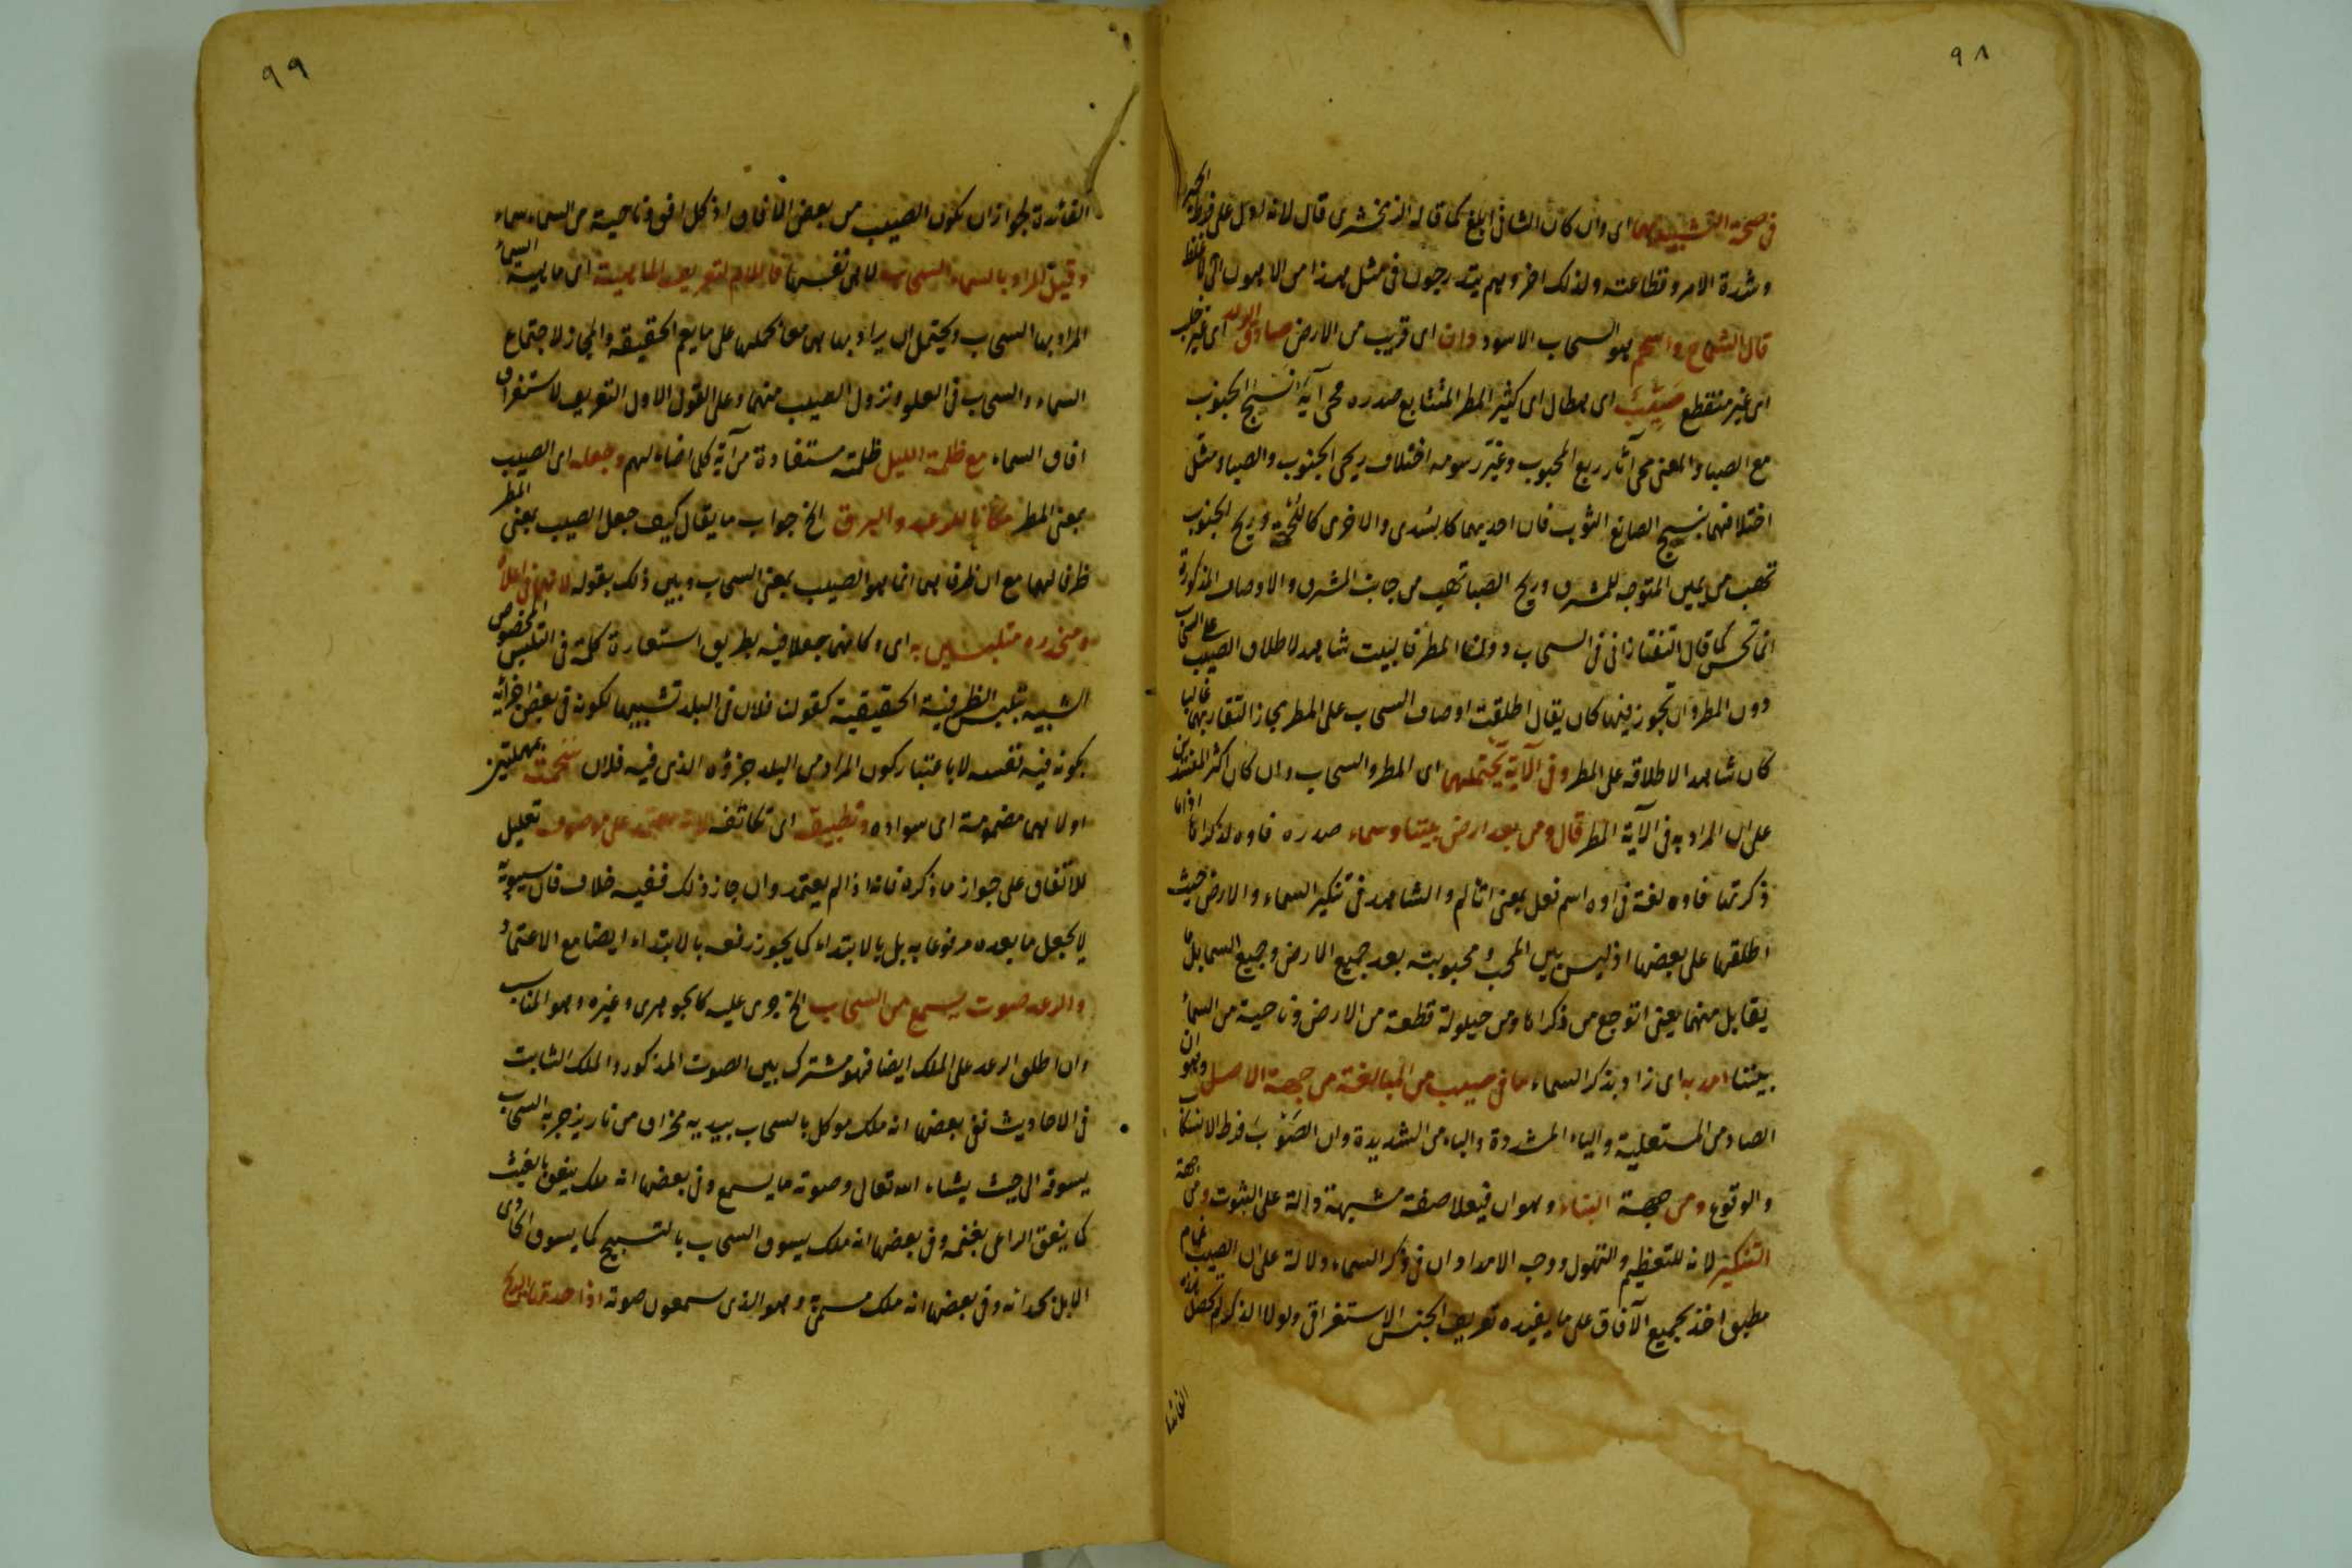 ٩٨
فى صحة التشبيه بهما اى وان كان الثانى ابلغ كما قاله الزمخشرى قال لانه ادل على فرط الحيرة
وشدة الامر وفظاعته ولذلك اخر وهم يتدرجون فى مثل هذا من الاهون الى الاغلظ
قال الشماخ واسحم هو السحاب الاسود دان اى قريب من الارض صادق الوعد اى غير خلب
اى غير منقطع صيّب اى هطال اى كثير المطر المتتابع صدره محى آيه نسج الجنوب
مع الصبا والمعنى محى آثار ربع المحبوب وغيّر رسومه اختلاف ريحى الجنوب والصبا ومثل
اختلافهما بنسج الصانع الثوب فان احديهما كالسدى والاخرى كاللحمة وريح الجنوب
تهب من يمين المتوجه للمشرق وريح الصبا تهب من جانب المشرق والاوصاف المذكورة
انما تحسن كما قال التفتازانى فى السحاب دون المطر فالبيت شاهد لاطلاق الصيب على السحاب
دون المطر وان تجوز فيها كان يقال اطلقت اوصاف السحاب على المطر مجازا لتقاربهما غالبا
كان شاهدا لاطلاقه على المطر وفى الآية يحتملهما اى المطر والسحاب وان كان اكثر المفسرين
على ان المراد به فى الآية المطر قال ومن بعد ارض بيننا وسماء صدره فاوه لذكراها اذا ما
ذكرتها فاوه لغة فى اوه اسم فعل بمعنى اتألم والشاهد فى تنكير السماء والارض حيث
اطلقها على بعضها اذ ليس بين المحب ومحبوبته بعد جميع الارض وجميع السما بل ما
يقابل منهما يعنى اتوجع من ذكراها ومن حيلولة قطعة من الارض وناحية من السماء
بيننا امد به اى زاد بذكر السماء ما فى صيب من المبالغة من جهة الاصل وهو ان
الصاد من المستعلية والياء المشددة والباء من الشديدة وان الصَوْبَ فرط الانسكاب
والوقوع ومن جهة البناء وهو ان فيعلا صفة مشبهة دالة على الثبوت ومن جهة
التنكير لانه للتعظيم والتهويل ووجه الامداد ان فى ذكر السماء دلالة على ان الصيب غمام
مطبق اخذ بجميع الآفاق على ما يفيده تعريف الجنس الاستغراقى ولولا الذكر لم تحصل هذه
الفائدة
٩٩
الفائدة لجواز ان يكون الصيب من بعض الآفاق اذ كل افق وناحية من السماء سماء
وقيل المراد بالسماء السحاب لا هى نفسها فاللام لتعريف الماهية اى ماهية السماء
المراد بها السحاب ويحتمل ان يراد بها هى معا لحملها على ما يعم الحقيقة والمجاز لاجتماع
السماء والسحاب فى العلو ونزول الصيب منهما وعلى القول الاول التعريف لاستغراق
افاق السماء مع ظلمة الليل ظلمته مستفادة من آية كلما اضاء لهم وجعله اى الصيب
بمعنى المطر مكانا للرعد والبرق الخ جواب ما يقال كيف جعل الصيب بمعنى المطر
ظرفا لهما مع ان ظرفهما انما هو الصيب بمعنى السحاب وبين ذلك بقوله لانهما فى اعلاه
ومنحدره متلبسين به اى وكانهما جعلا فيه بطريق استعارة كلمة فى للتلبس المخصوص
الشبيه بتلبس الظرفية الحقيقية كقولك فلان فى البلد تشبيها لكونه فى بعض اجزائه
بكونه فيه نفسه لا باعتبار كون المراد من البلد جزؤه الذى فيه فلان سحمته بمهملتين
اولاهما مضمومة اى سواده وتطبيقه اى تكاثفه لانه معتمد على موصوف تعليل
للاتفاق على جواز ما ذكره فانه اذا لم يعتمد وان جاز ذلك ففيه خلاف فان سيبويه
لا يجعل ما بعده مرفوعا به بل بالابتداء كما يجوز رفعه بالابتداء ايضا مع الاعتماد
والرعد صوت يسمع من السحاب الخ جرى عليه كالجوهرى وغيره وهو المناسب
وان اطلق الرعد على الملك ايضا فهو مشترك بين الصوت المذكور والملك الثابت
فى الاحاديث ففى بعضها انه ملك موكل بالسحاب بيديه مخراق من نار يزجر به السحاب
يسوقه الى حيث يشاء الله تعالى وصوته ما يسمع وفى بعضها انه ملك ينعق بالغيث
كما ينعق الراعى بغنمه وفى بعضها انه ملك يسوق السحاب بالتسبيح كما يسوق الحادى
الابل بحدائه وفى بعضها انه ملك مسمى به وهو الذى تسمعون صوته اذا حدتها الريح